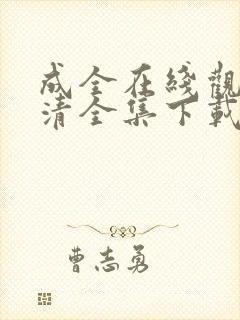 成全在綫觀
清全集下載
曹志勇